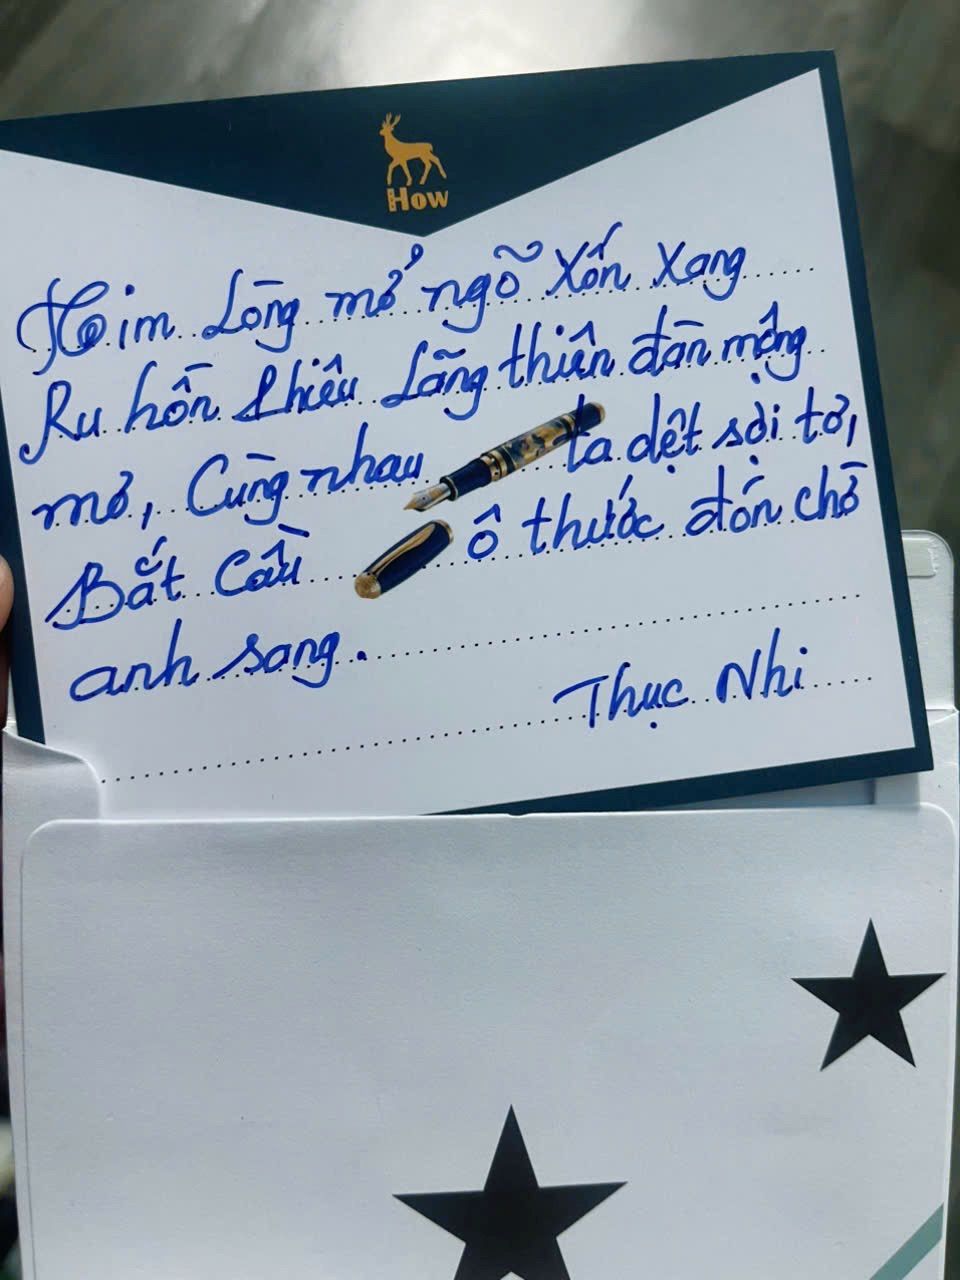 How
Tim Lòng mở ngõ xốn xang
Ru hồn phiêu Lãng thiên đàn mộng
mơ, Cùng nhau ta dệt sợi tơ,
Bắt Cầu ô thước đón chờ
anh sang.
Thục Nhi